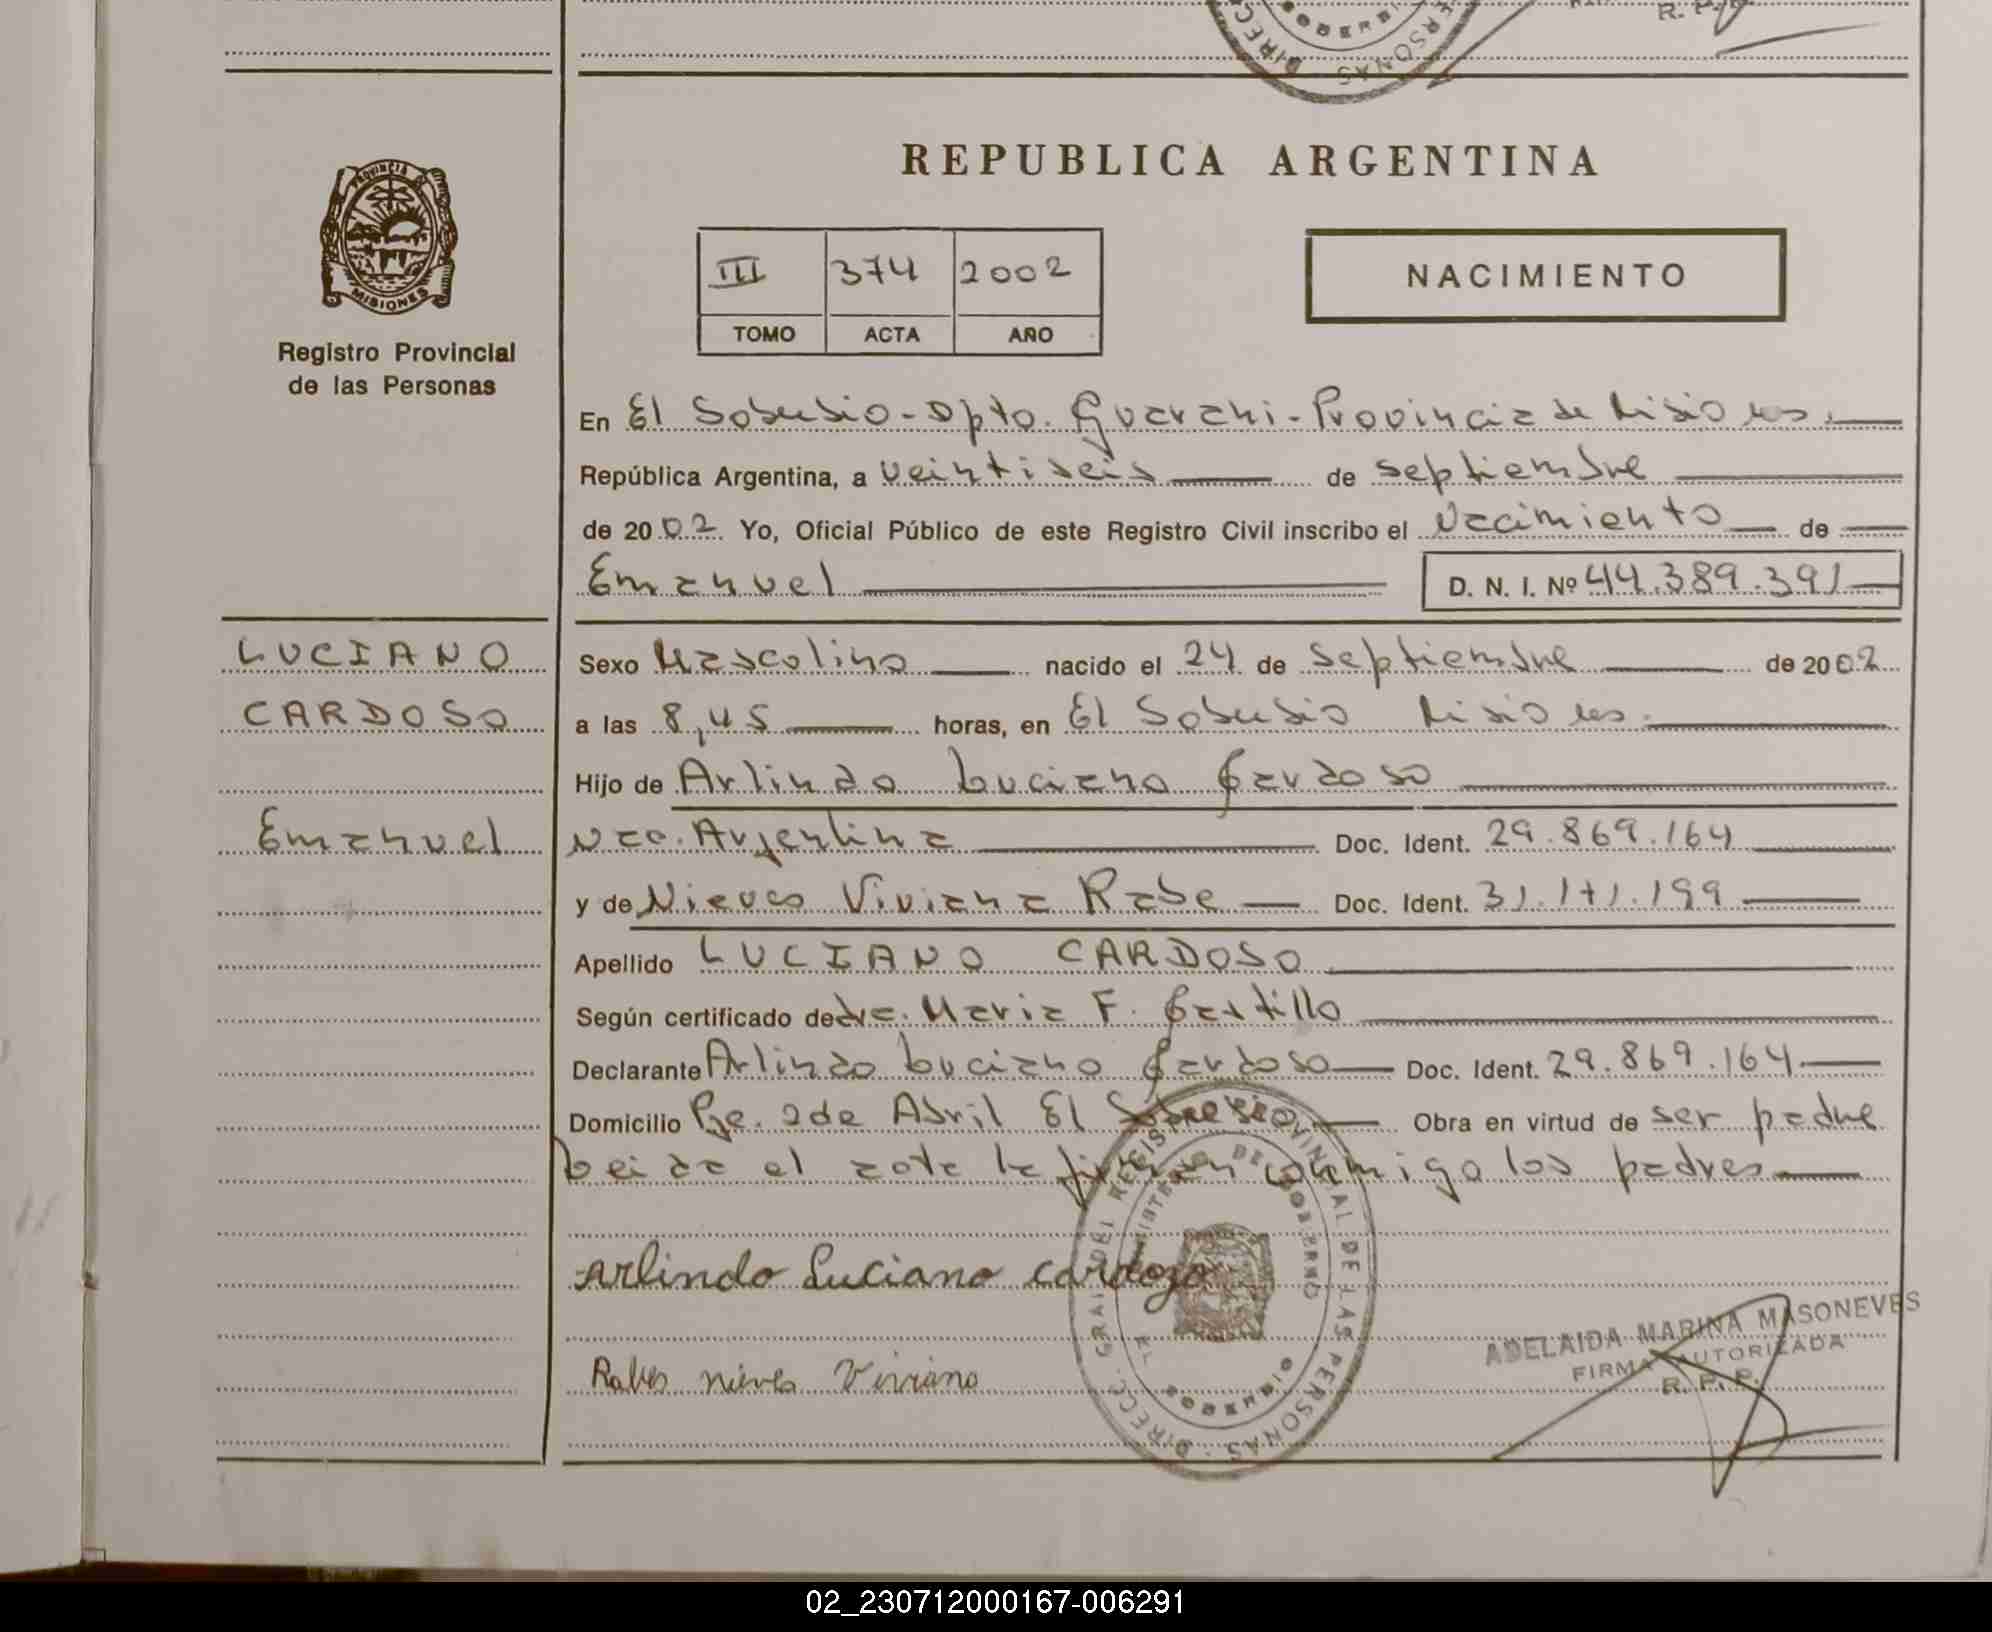 DIRECC PERSONAS
GOBERNI
R. P. P.
PROVINCIA DE
MISIONES
Registro Provincial
de las Personas
REPUBLICA ARGENTINA
III 374 2002
TOMO ACTA AÑO
NACIMIENTO
En El Soberbio - Dpto. Guarani - Provincia de Misiones.
República Argentina, a veintiseis de septiembre
de 2002 Yo, Oficial Público de este Registro Civil inscribo el Nacimiento de
Emanuel D. N. I. Nº 44.389.391
LUCIANO
CARDOSO
Emanuel
Sexo Masculino nacido el 24 de septiembre de 2002
a las 8,45 horas, en El Soberbio Misiones.
Hijo de Arlindo Luciano Cardoso
Nac. Argentina Doc. Ident. 29.869.164
y de Nieves Viviana Rabe Doc. Ident. 31.171.199
Apellido LUCIANO CARDOSO
Según certificado de dra. Maria F. Castillo
Declarante Arlindo Luciano Cardoso Doc. Ident. 29.869.164
Domicilio Pje. 2 de Abril El Soberbio Obra en virtud de ser padre
Leida el acta la firman conmigo los padres
Arlindo Luciano Cardozo
Rabes nieves Viviana
DIRECC. GRAL. DEL REGISTRO PROVINCIAL DE LAS PERSONAS
MINISTERIO DE GOBIERNO
SOBERBIO
ADELAIDA MARINA MASONEVES
FIRMA AUTORIZADA
R. P. P.
02_230712000167-006291